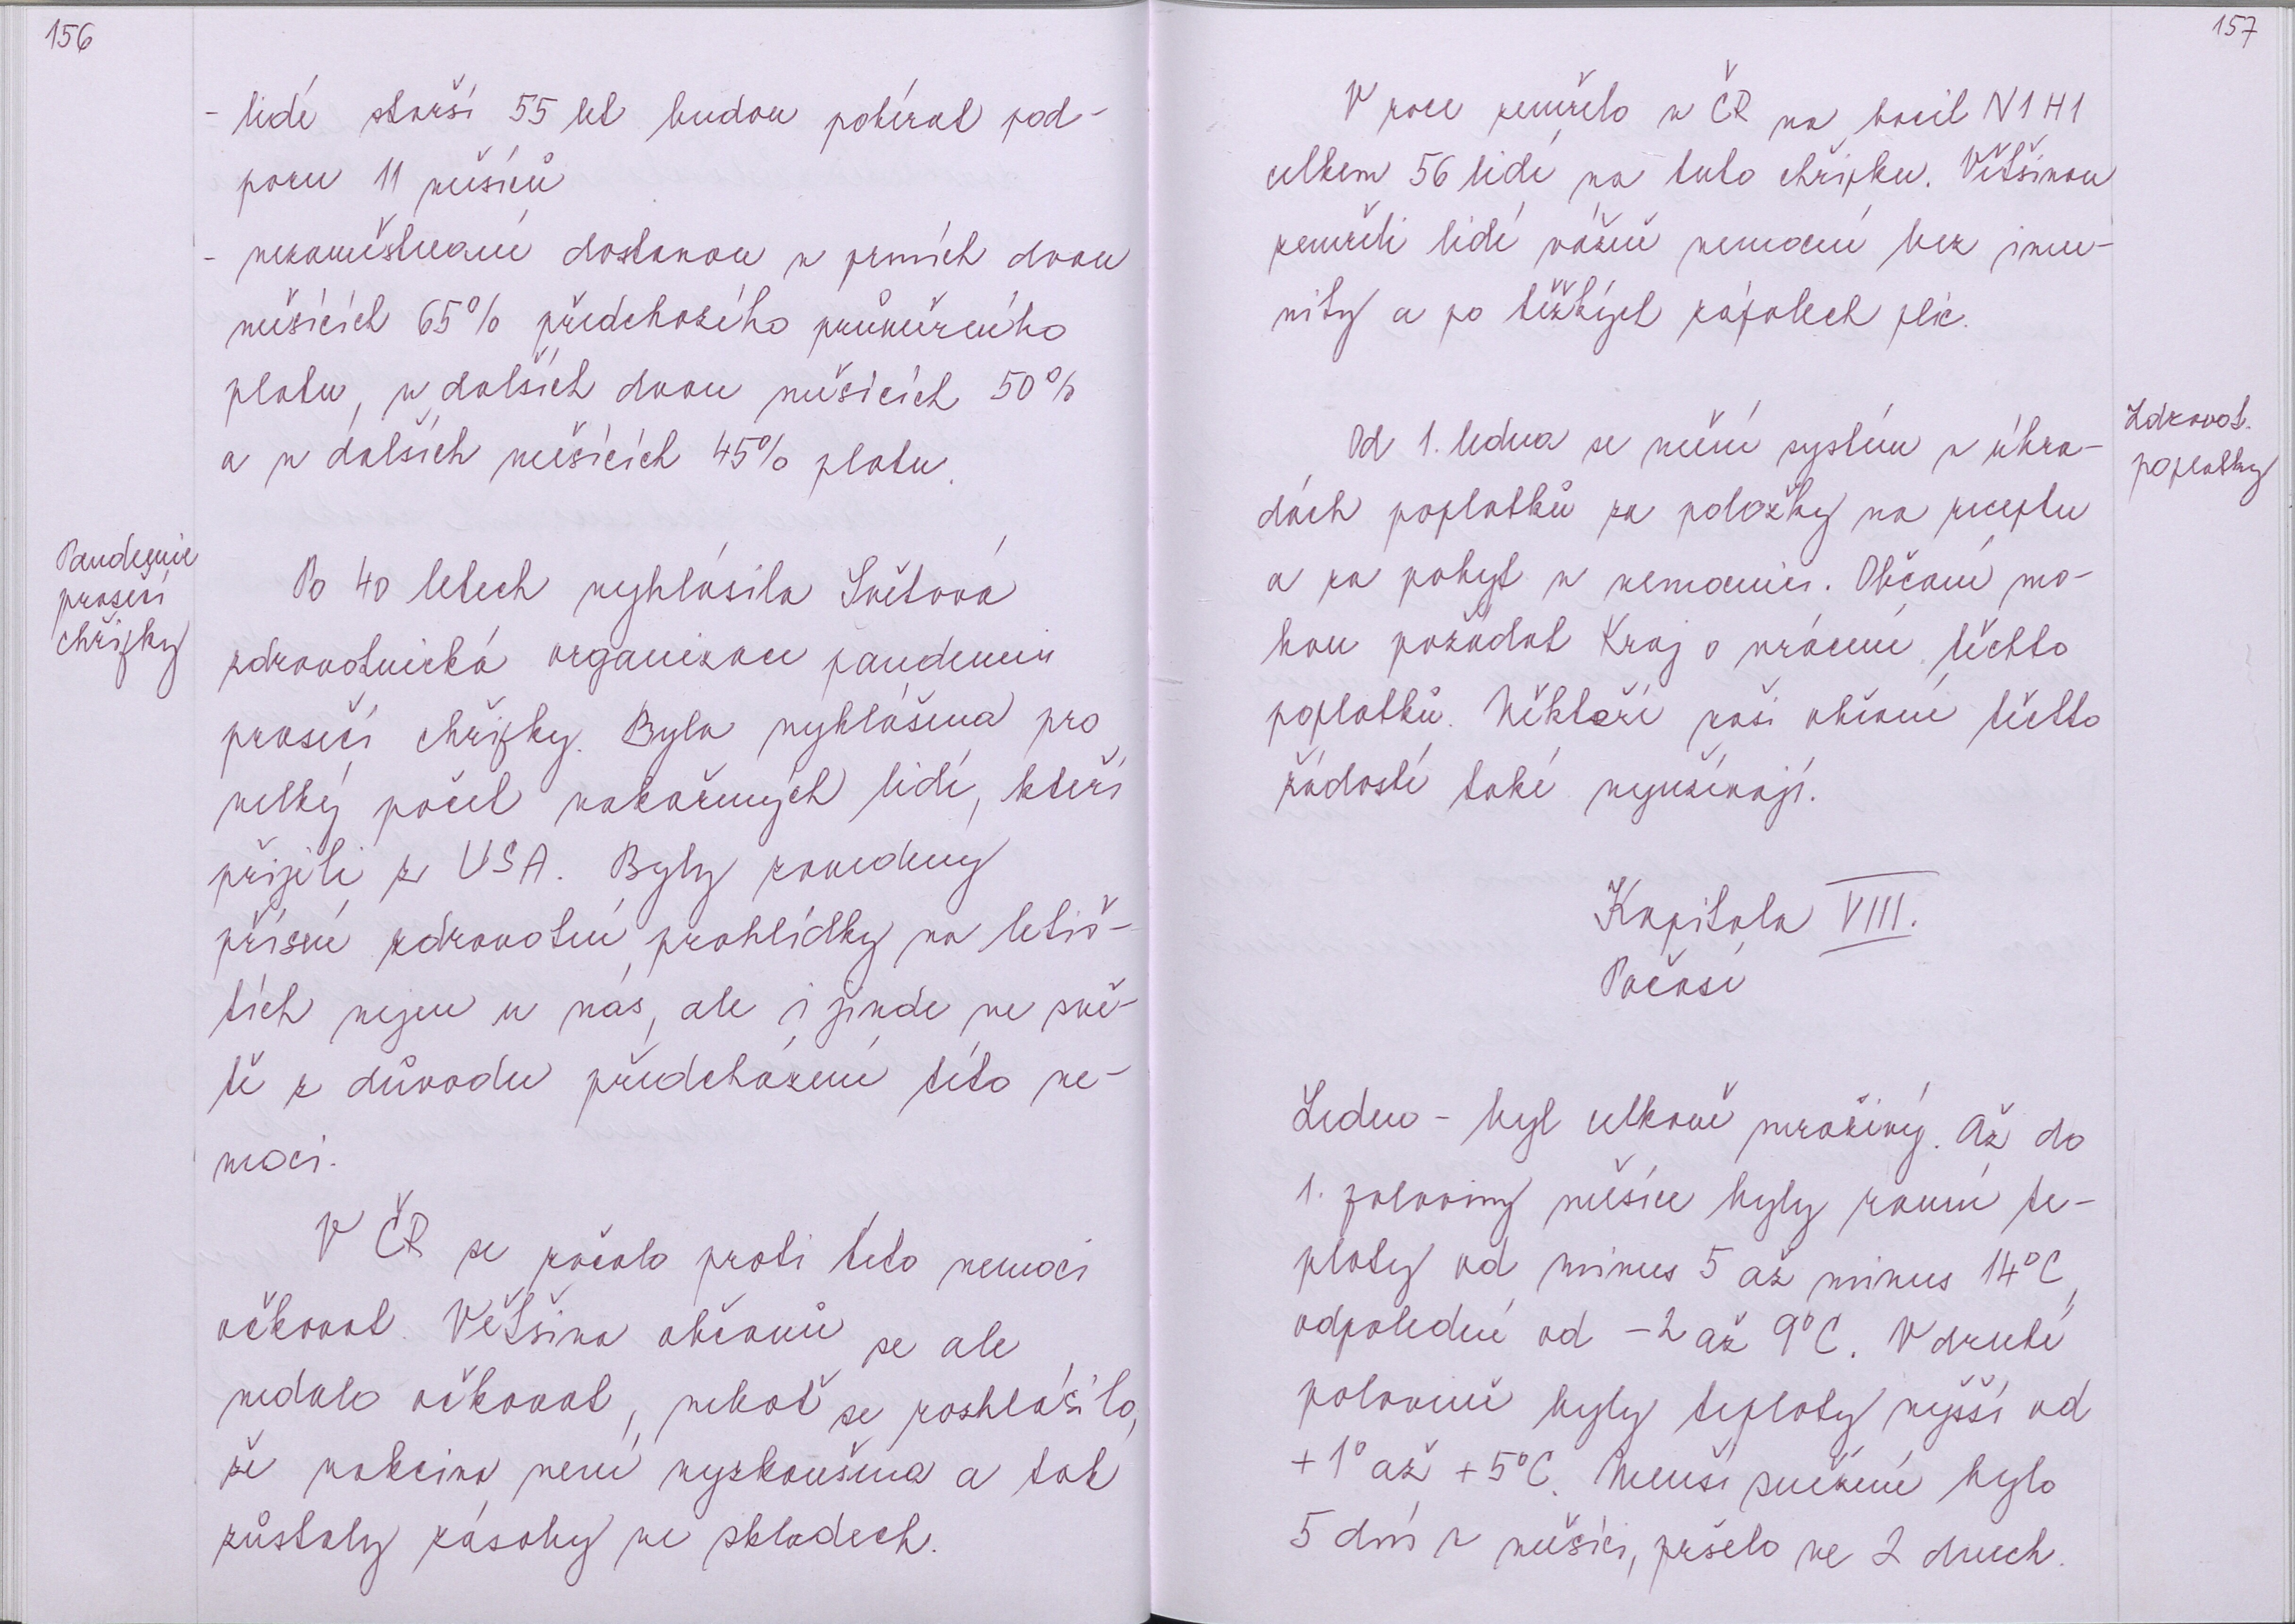 156
- lidé starší 55 let budou pobírat pod-
poru 11 měsíců
- nezaměstnaní dostanou v prvních dvou
měsících 65% předchozího průměrného
platu, v dalších dvou měsících 50%
a v dalších měsících 45% platu.
Pandemie
prasečí
chřipky
Po 40 letech vyhlásila Světová
zdravotnická organizace pandemii
prasečí chřipky. Byla vyhlášena pro
velký počet nakažených lidí, kteří
přijeli z USA. Byly zavedeny
přísné zdravotní prohlídky na letiš-
tích nejen u nás, ale i jinde ve svě-
tě z důvodu předcházení této ne-
moci.
V ČR se začalo proti této nemoci
očkovat. Většina občanů se ale
nedala očkovat, neboť se rozhlásilo,
že vakcina není vyzkoušena a tak
zůstaly zásoby ve skladech.
157
V roce zemřelo v ČR na bacil N1H1
celkem 56 lidí na tuto chřipku. Většinou
zemřeli lidé vážně nemocní bez imu-
nity a po těžkých zápalech plic.
Zdravot.
poplatky
Od 1. ledna se mění systém v úhra-
dách poplatků za položky na receptu
a za pobyt v nemocnici. Občané mo-
hou požádat Kraj o vrácení těchto
poplatků. Někteří naši občané těchto
žádostí také využívají.
Kapitola VIII.
Počasí
Leden - byl celkově mrazivý. Až do
1. poloviny měsíce byly ranní te-
ploty od minus 5 až minus 14°C,
odpolední od -2 až 9°C. V druhé
polovině byly teploty vyšší od
+1° až +5°C. Menší sněžení bylo
5 dní v měsíci, pršelo ve 2 dnech.